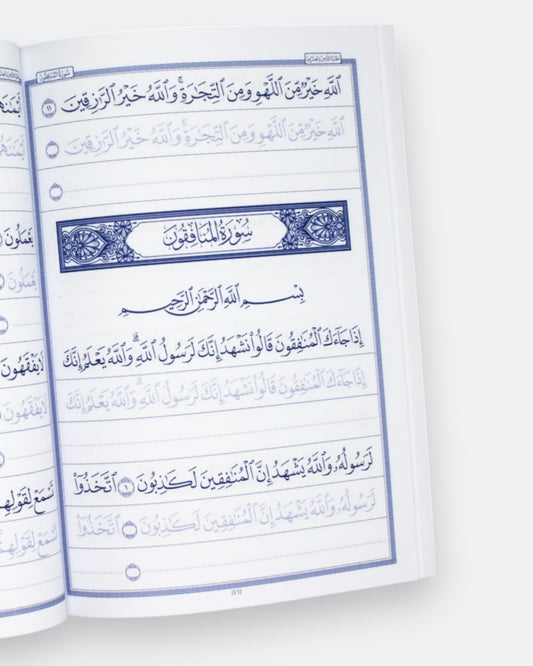 اللَّهِ خَيْرٌ مِّنَ اللَّهْوِ وَمِنَ التِّجَارَةِ ۚ وَاللَّهُ خَيْرُ الرَّازِقِينَ ١١
اللَّهِ خَيْرٌ مِّنَ اللَّهْوِ وَمِنَ التِّجَارَةِ ۚ وَاللَّهُ خَيْرُ الرَّازِقِينَ
سُورَةُ الْمُنَافِقُونَ
بِسْمِ اللَّهِ الرَّحْمَٰنِ الرَّحِيمِ
إِذَا جَاءَكَ الْمُنَافِقُونَ قَالُوا نَشْهَدُ إِنَّكَ لَرَسُولُ اللَّهِ ۗ وَاللَّهُ يَعْلَمُ إِنَّكَ
إِذَا جَاءَكَ الْمُنَافِقُونَ قَالُوا نَشْهَدُ إِنَّكَ لَرَسُولُ اللَّهِ ۗ وَاللَّهُ يَعْلَمُ إِنَّكَ
لَرَسُولُهُ وَاللَّهُ يَشْهَدُ إِنَّ الْمُنَافِقِينَ لَكَاذِبُونَ ١ اتَّخَذُوا
لَرَسُولُهُ وَاللَّهُ يَشْهَدُ إِنَّ الْمُنَافِقِينَ لَكَاذِبُونَ اتَّخَذُوا
(٤٦)
يَعْمَلُونَ
يَعْمَلُونَ
لَا يَفْقَهُونَ
لَا يَفْقَهُونَ
تَسْمَعْ لِقَوْلِهِمْ
تَسْمَعْ لِقَوْلِهِمْ